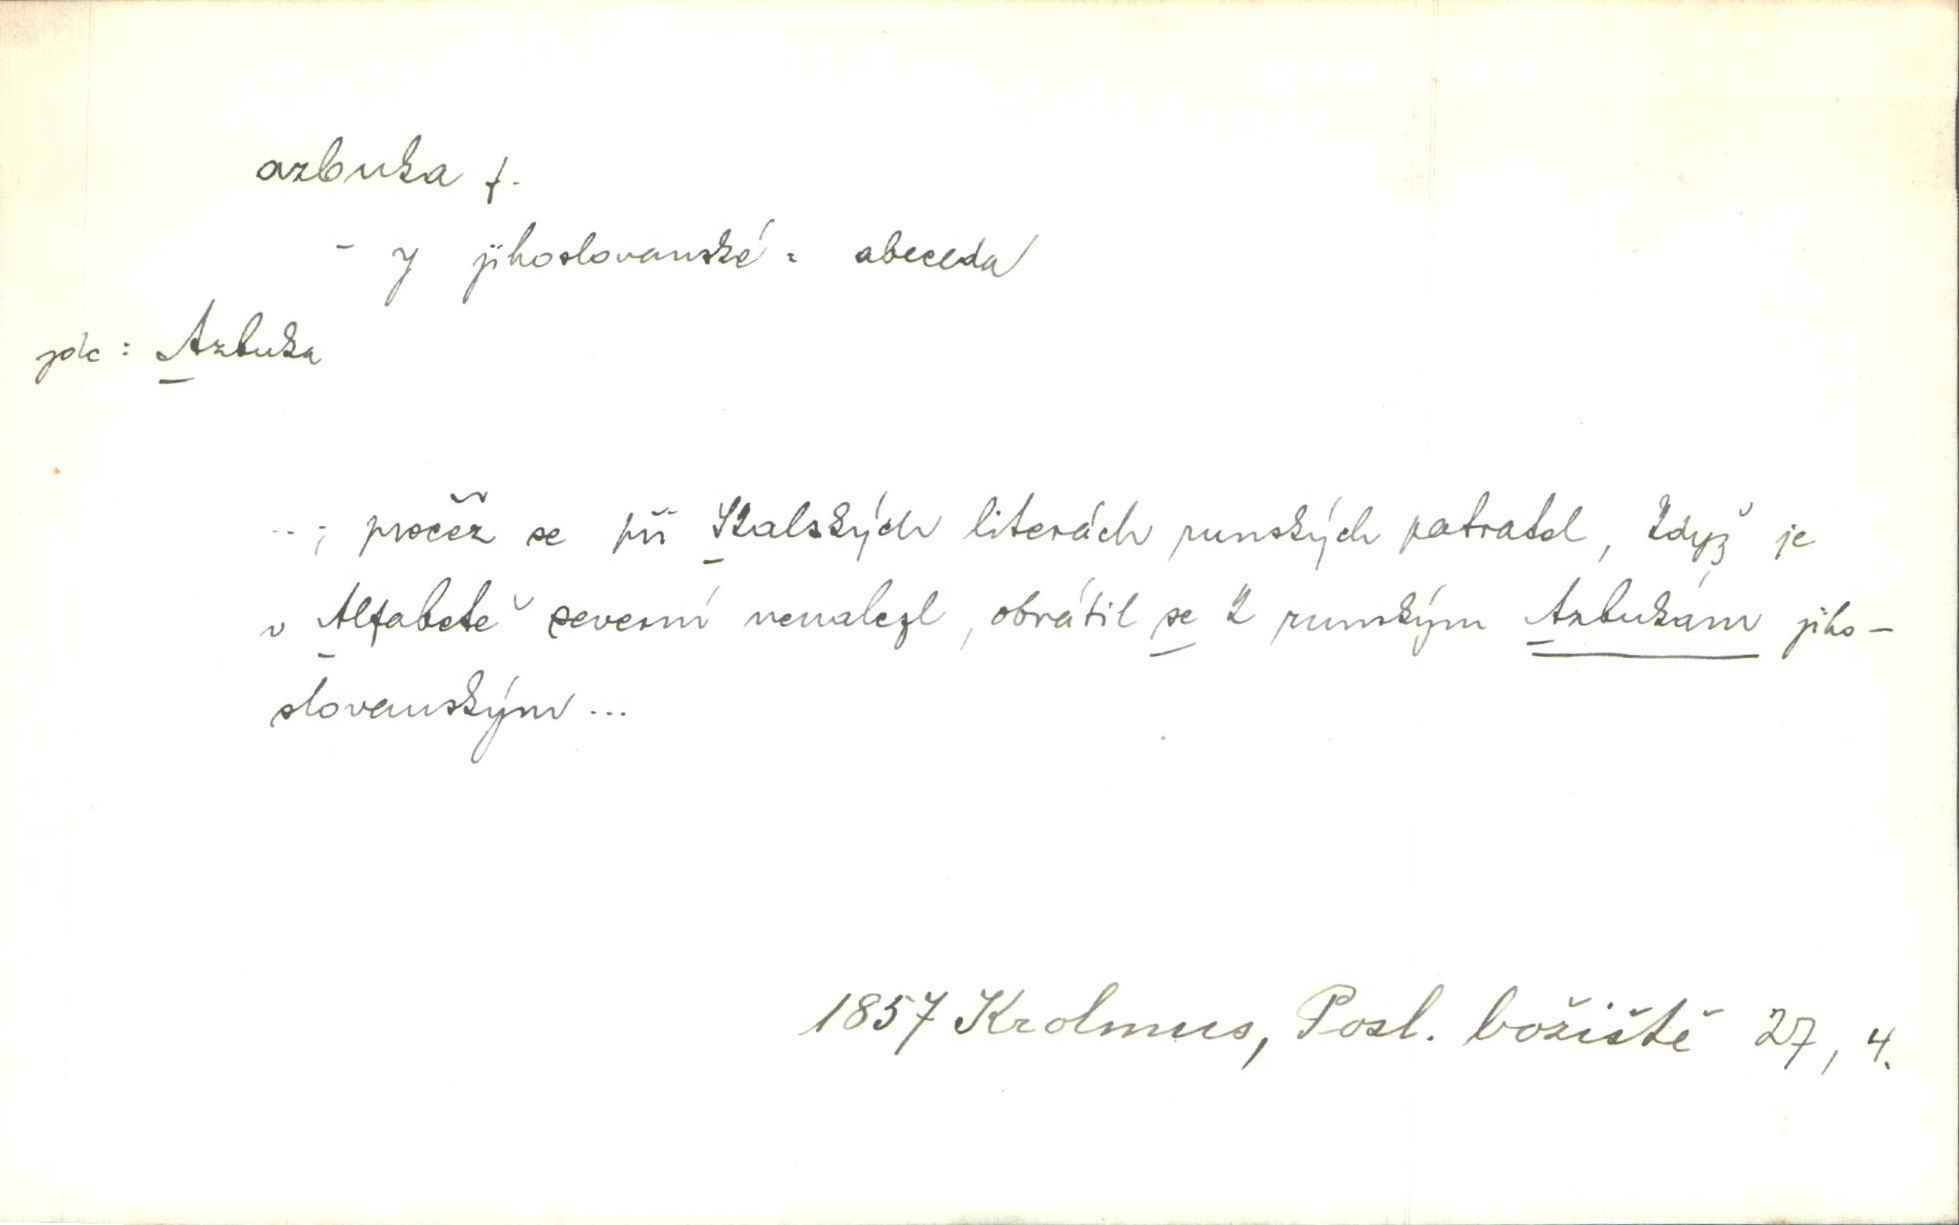 azbuka f.
- y jihoslovanské = abeceda
: Azbuka
..; pročež se při Skalských literách runských patratel, když je
v Alfabetě severní nenalezl, obrátil se k runským Azbukám jiho-
slovanským ...
1857 Krolmus, Posl. božiště 27, 4.